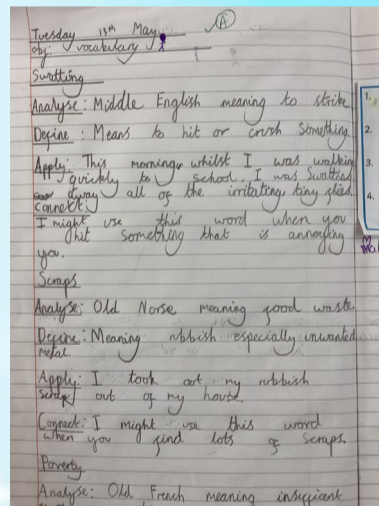 Tuesday 13th May
A
obj: vocabulary
Swatting
Analyse: Middle English meaning to strike
Define: Means to hit or crush something.
Apply: This morning, whilst I was walking
quickly to school, I was swatting
away all of the irritating tiny flies.
Connect:
I might use this word when you
hit something that is annoying
you.
Scraps
Analyse: Old Norse meaning food waste.
Define: Meaning rubbish especially unwanted
metal
Apply: I took out my rubbish
scrap out of my house.
Connect: I might use this word
when you find lots of scraps.
Poverty
Analyse: Old French meaning insufficent
1.
2.
3.
4.